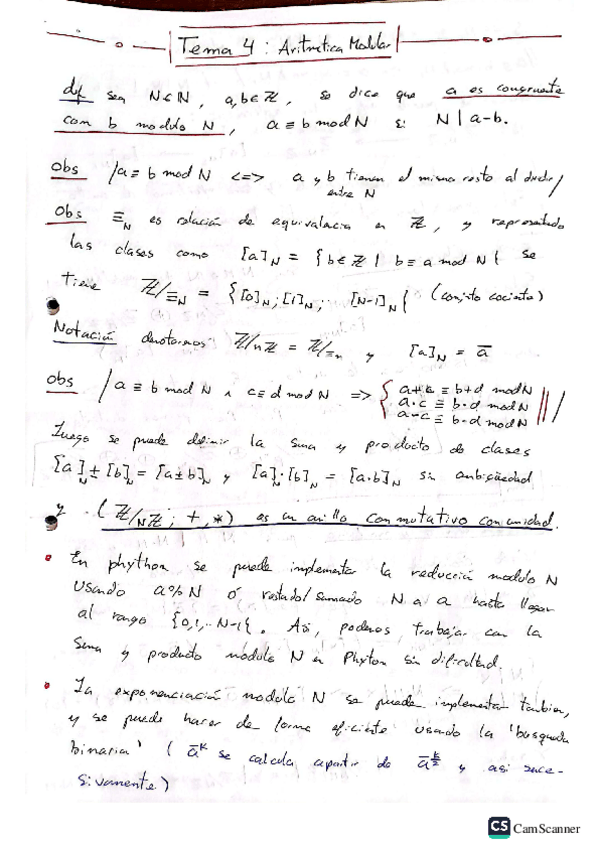 Tema 4: Aritmetica Modular
def sea N∈ℕ, a,b∈ℤ, se dice que a es congruente
con b modulo N, a ≡ b mod N si N | a-b.
Obs /a ≡ b mod N <=> a y b tienen el mismo resto al dividir/
entre N
Obs ≡_N es relación de equivalencia en ℤ, y representando
las clases como [a]_N = {b∈ℤ | b ≡ a mod N} se
tiene ℤ/≡_N = {[0]_N; [1]_N; ... [N-1]_N} (conjto cociente)
Notación denotamos ℤ/nℤ = ℤ/≡_n y [a]_N = ā
obs /a ≡ b mod N ∧ c ≡ d mod N => { a+c ≡ b+d mod N
a·c ≡ b·d mod N
a-c ≡ b-d mod N /
Luego se puede definir la suma y producto de clases
[a]_N ± [b]_N = [a±b]_N y [a]_N · [b]_N = [a·b]_N sin ambigüedad
y (ℤ/Nℤ; +, *) es un anillo conmutativo con unidad.
• En phython se puede implementar la reducción modulo N
usando a%N ó restado/sumando N a a hasta llegar
al rango {0,1,..N-1}. Asi, podemos trabajar con la
suma y producto modulo N en Phyton sin dificultad.
• La exponenciación modulo N se puede implementar tambien,
y se puede hacer de forma eficiente usando la 'busqueda
binaria' (ā^k se calcula apartir de ā^(k/2) y asi suce-
sivamente)
CS CamScanner